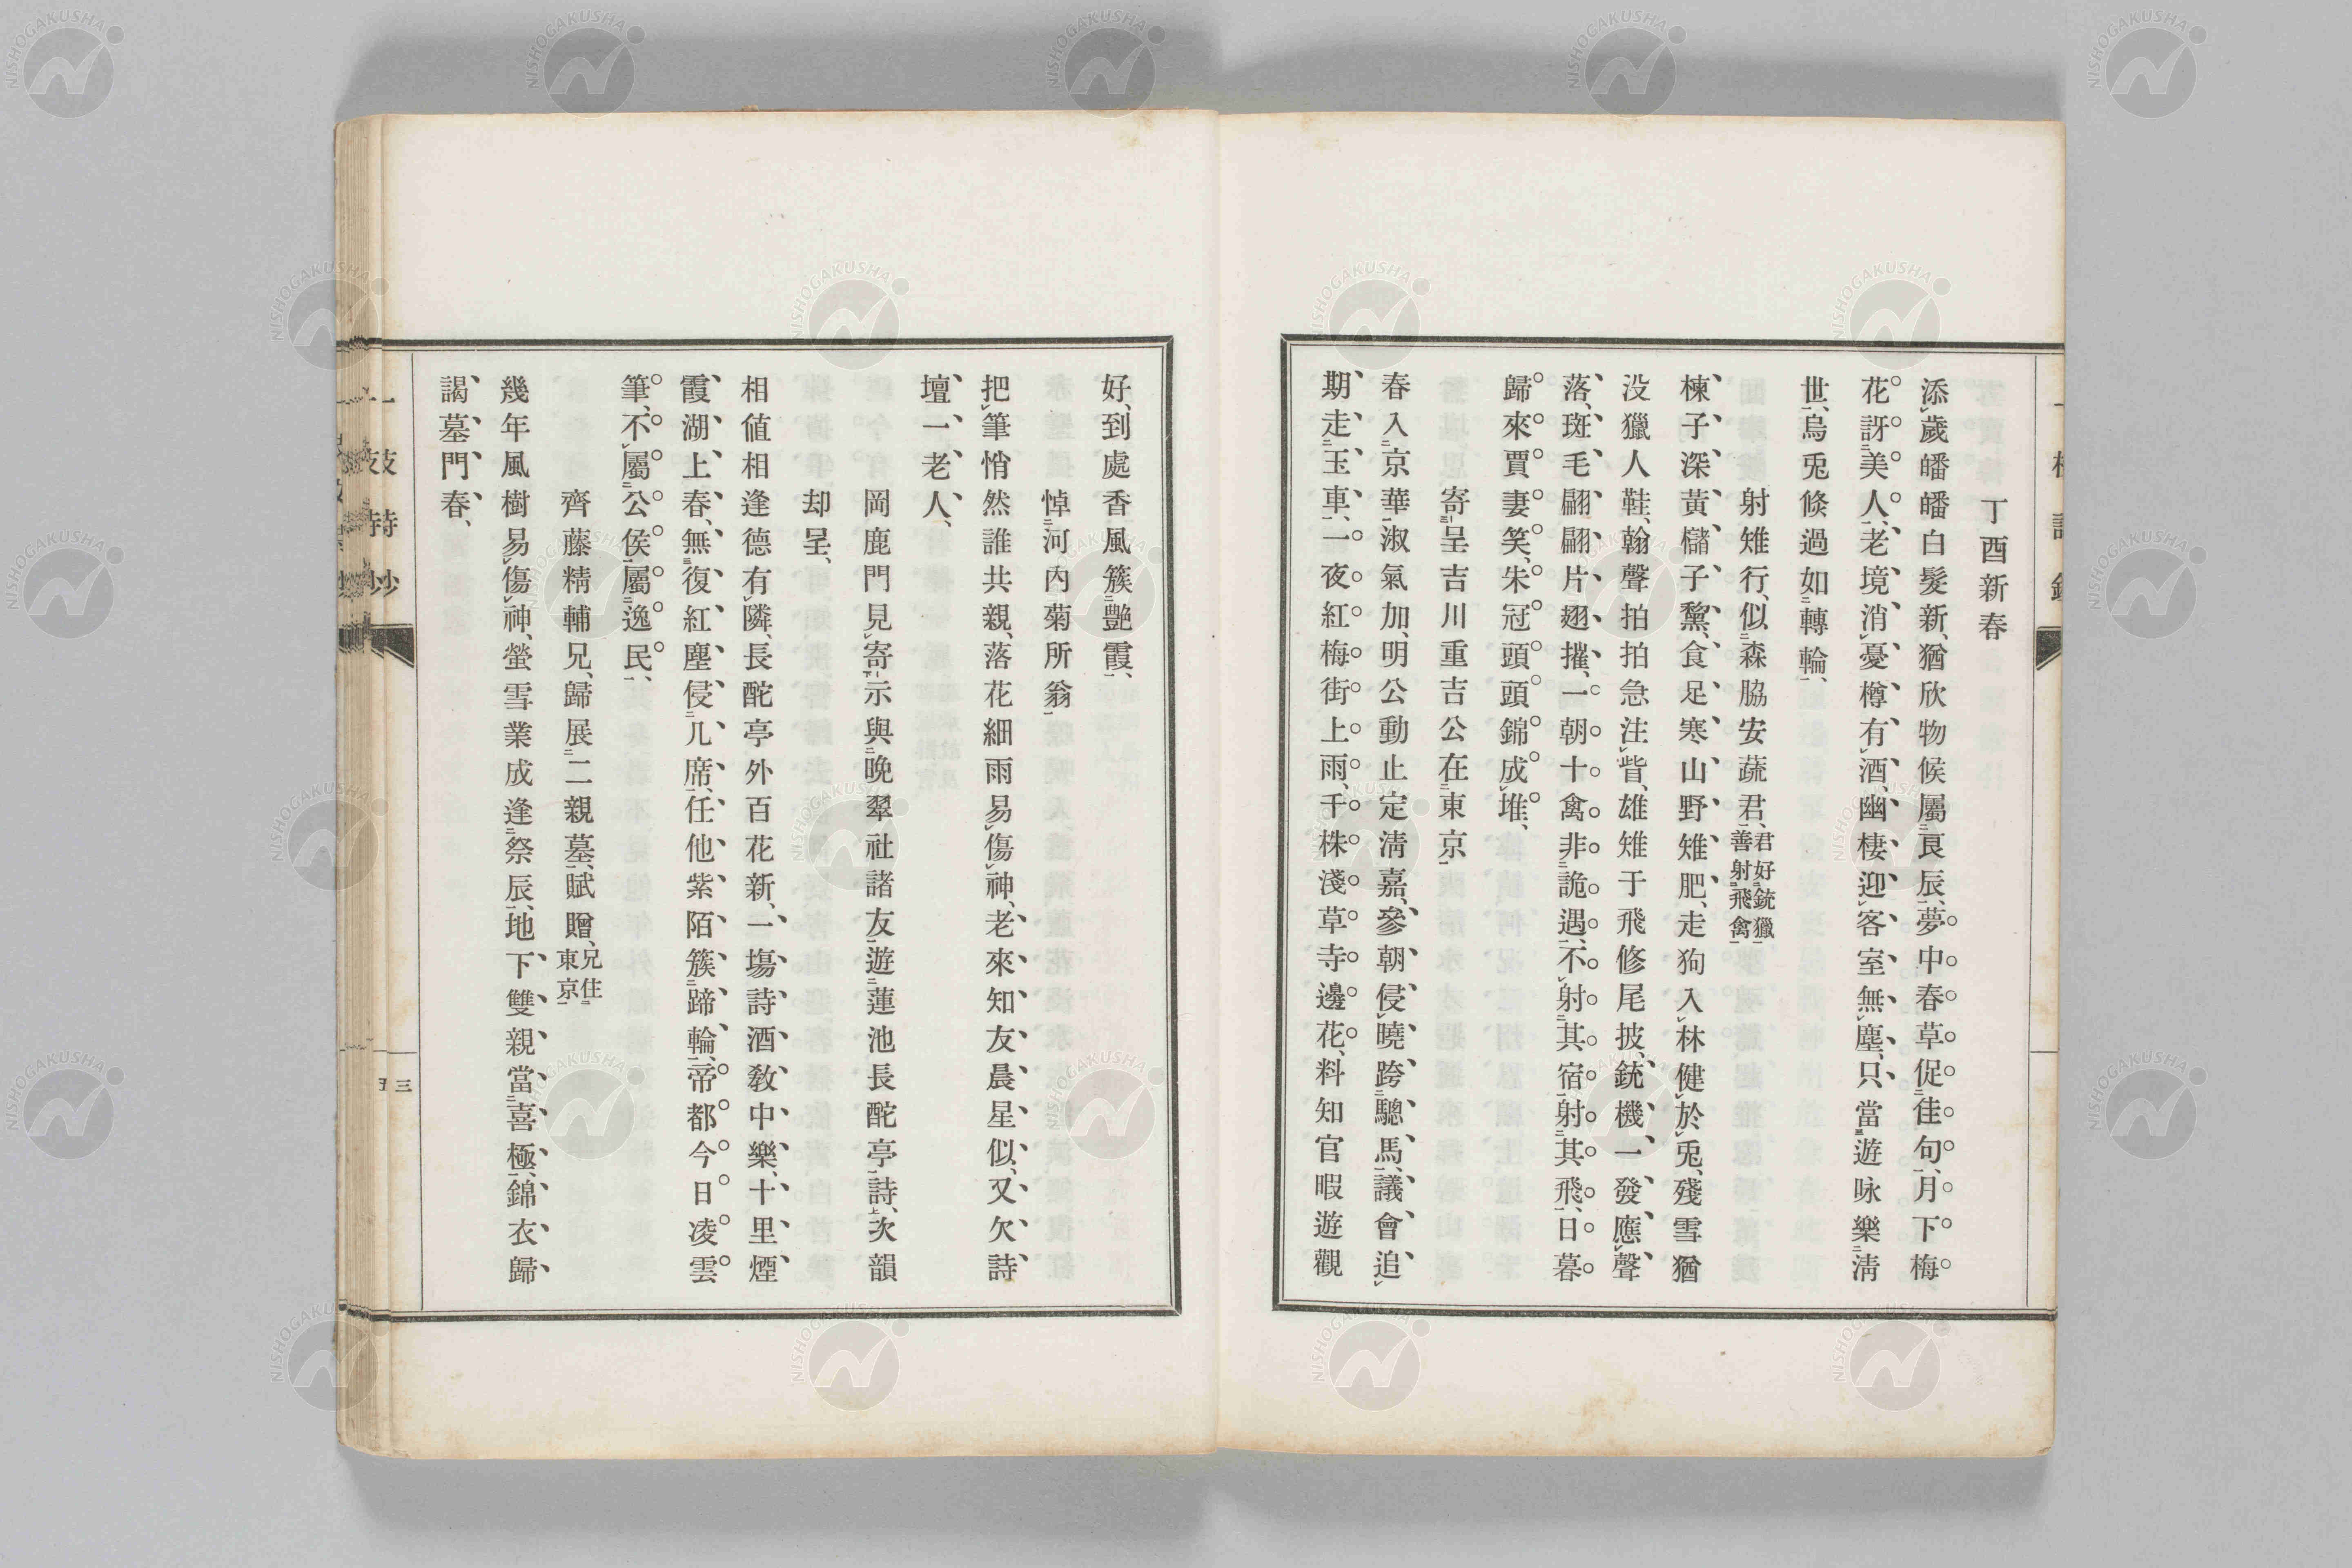 丁酉新春
添歲皤皤白髮新、猶欣物候屬良辰、夢中春草促佳句、月下梅
花訝美人、老境消憂樽有酒、幽棲迎客室無塵、只當遊咏樂清
世、烏兎倏過如轉輪、
射雉行、似森脇安蔬君、君好銃獵善射飛禽
楝子深黃櫧子黧、食足寒山野雉肥、走狗入林健於兎、殘雪猶
没獵人鞋、翰聲拍拍急注眥、雄雉于飛修尾披、銃機一發應聲
落、斑毛翩翩片翅摧、一朝十禽非詭遇、不射其宿射其飛、日暮
歸來賈妻笑、朱冠頭頭錦成堆、
寄呈吉川重吉公在東京
春入京華淑氣加、明公動止定清嘉、參朝侵曉跨驄馬、議會追
期走玉車、一夜紅梅街上雨、千株淺草寺邊花、料知官暇遊觀
好、到處香風簇艷霞、
悼河內菊所翁
把筆悄然誰共親、落花細雨易傷神、老來知友晨星似、又欠詩
壇一老人、
岡鹿門見寄示與晚翠社諸友遊蓮池長酡亭詩、次韻
却呈、
相値相逢德有隣、長酡亭外百花新、一塲詩酒敎中樂、十里煙
霞湖上春、無復紅塵侵几席、任他紫陌簇蹄輪、帝都今日凌雲
筆、不屬公侯屬逸民、
齊藤精輔兄、歸展二親墓、賦贈、兄住東京
幾年風樹易傷神、螢雪業成逢祭辰、地下雙親當喜極、錦衣歸
謁墓門春、
三